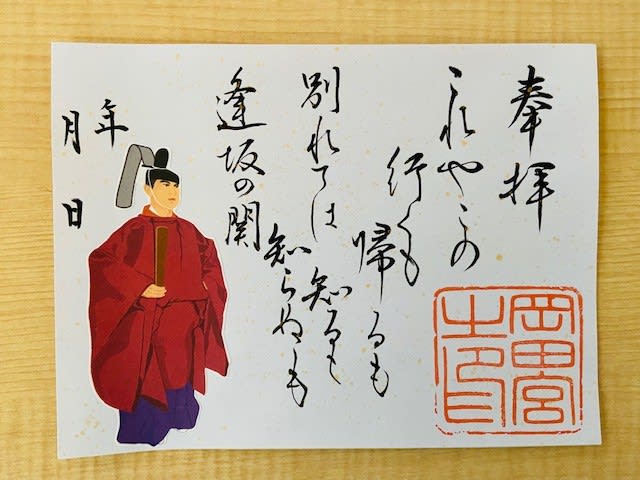 奉拝
これやこの
行くも
帰るも
別れては
知るも
知らぬも
逢坂の関
年
月 日
岡田宮
之印